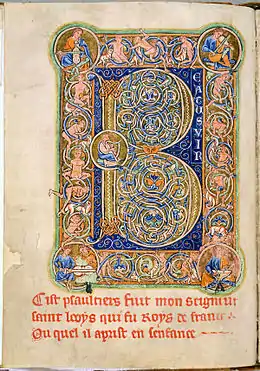 BEATUSVIR
Cist psaultiers fuit mon seigneur
saint looys qui fu Roys de france
Ou quel il aprist en senfance